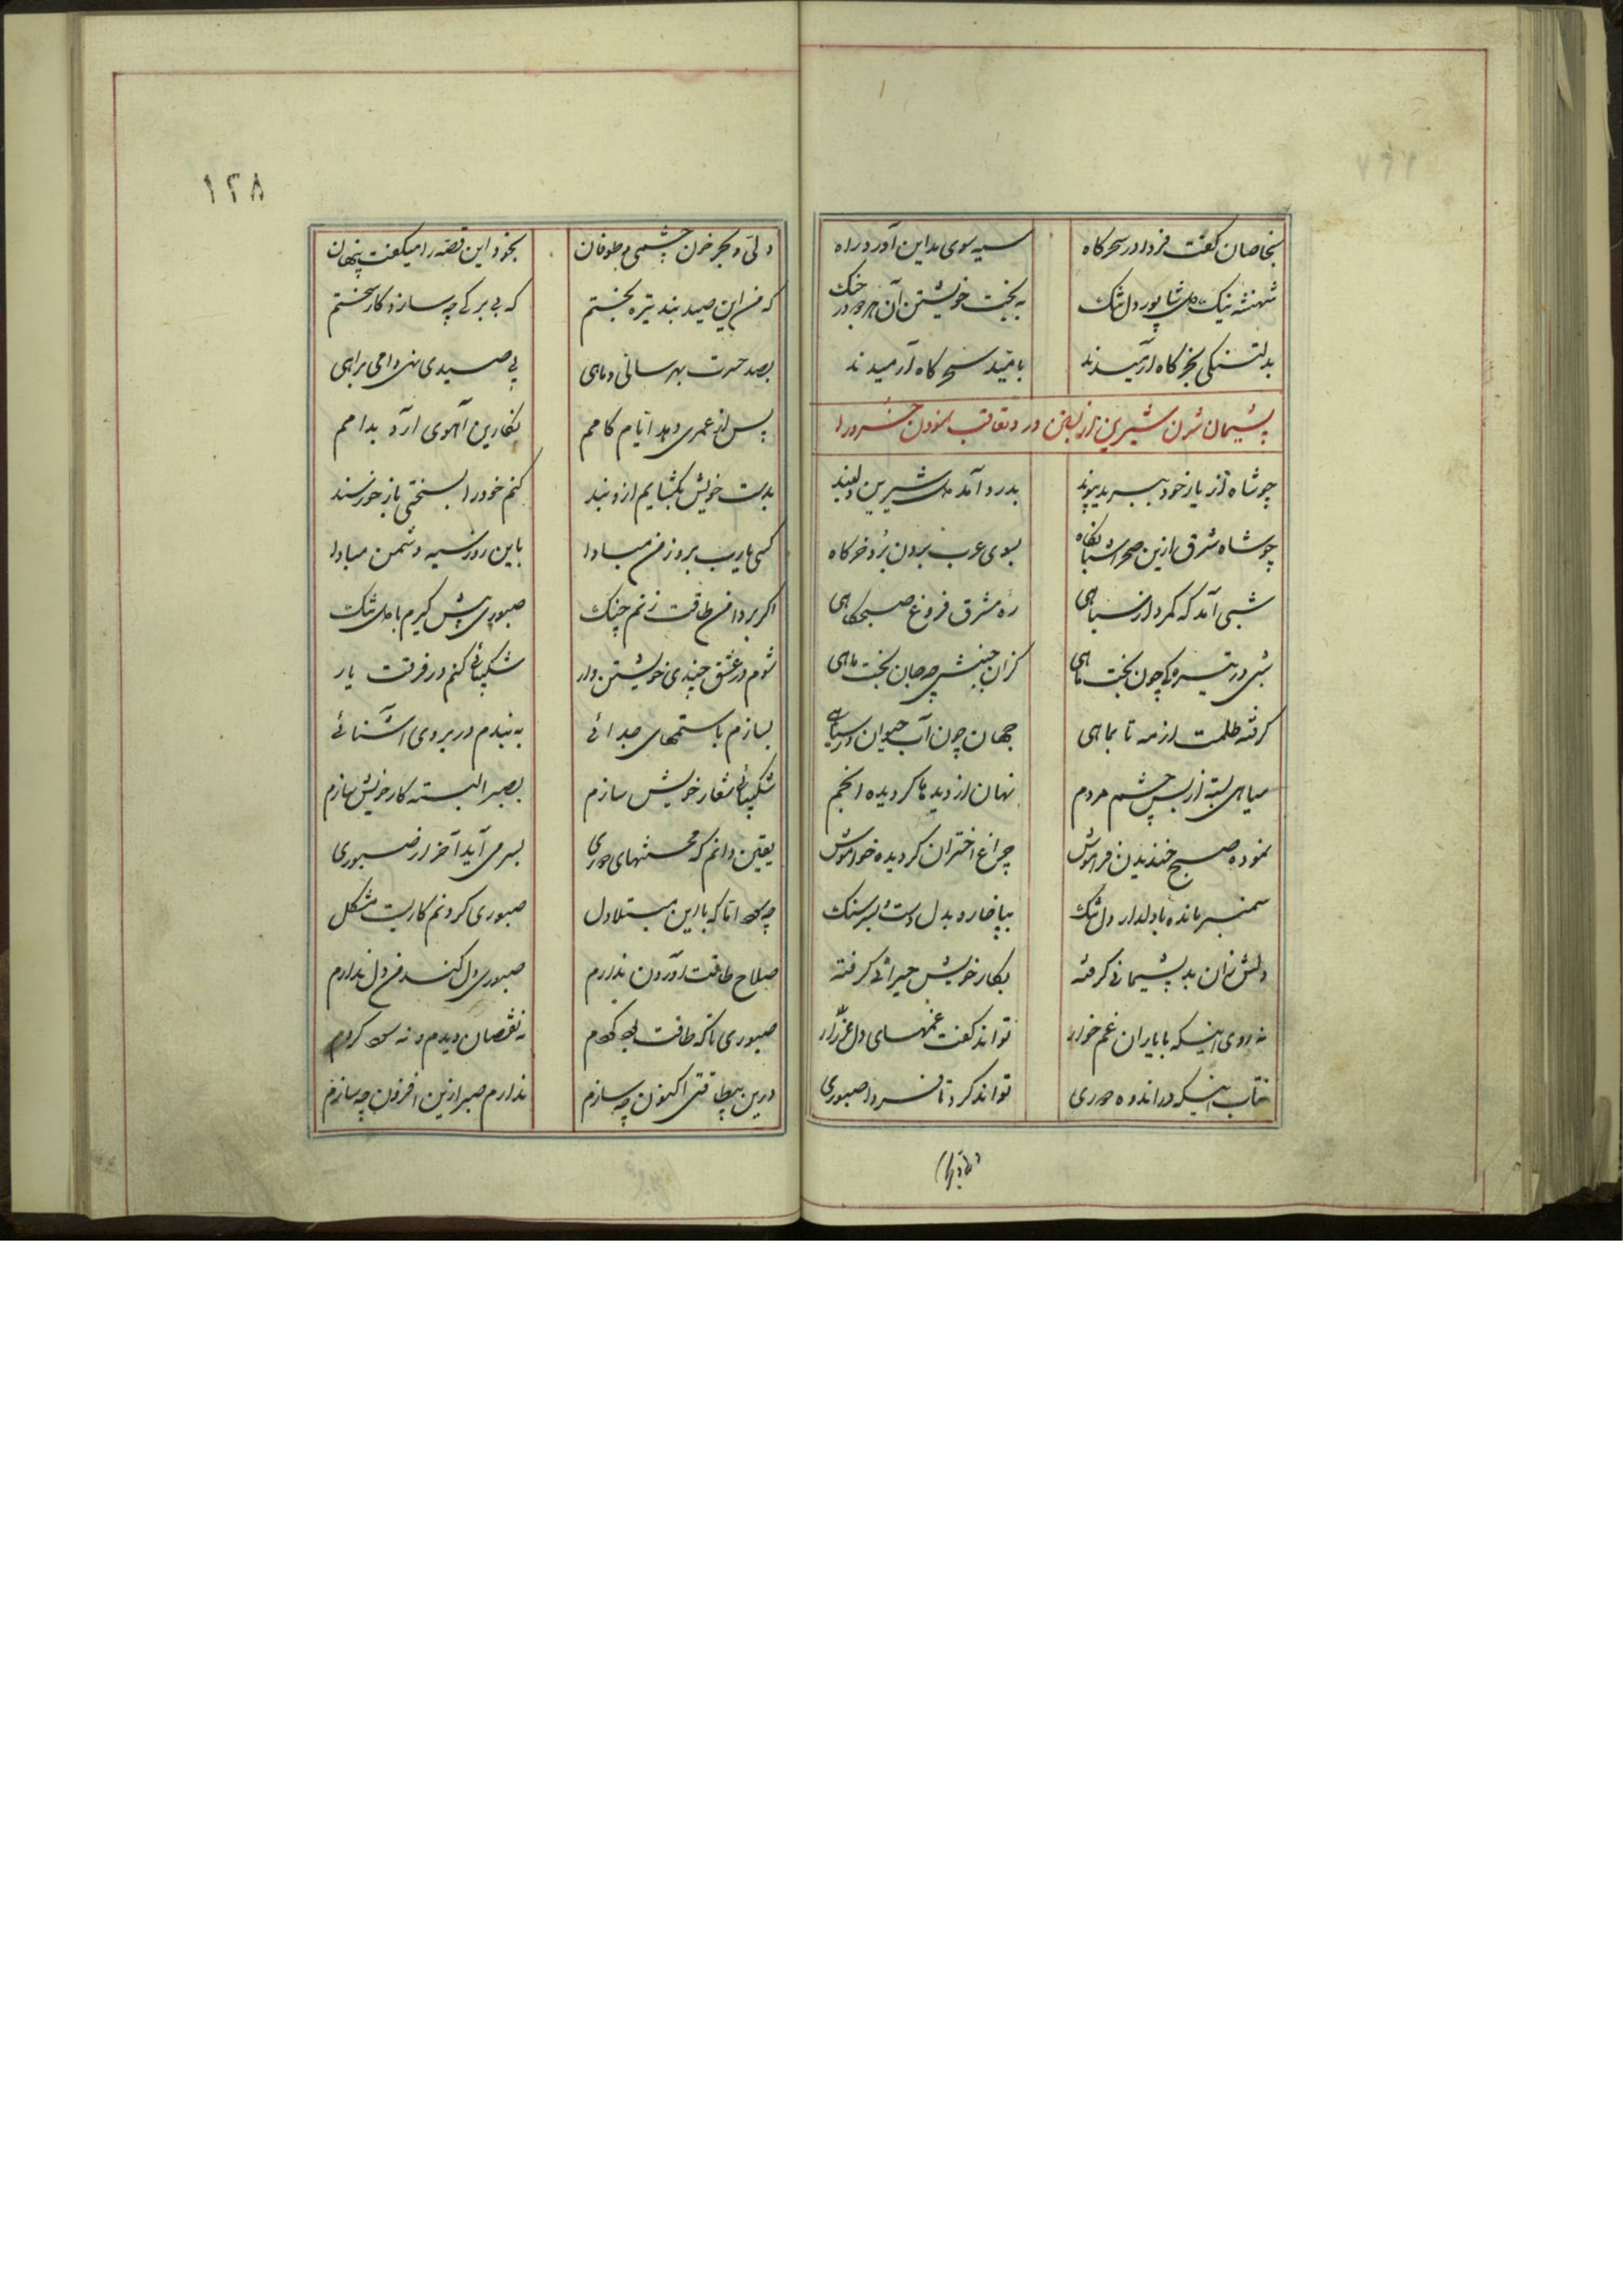 بخاصان گفت فردا در سحرگاه سپه سوی مداین آورد راه
شهنشه نیک شاپور دل تنگ به بخت خویشتن آن هر دو در جنگ
بدلتنگی بخرگاه آرمیدند بامید سحرگاه آرمیدند
پشیمان شدن شیرین از بستن در و تعاقب نمودن خسرو را
چو شاه از یار خود ببرید پیوند بدرد آمد دل شیرین دلبند
چو شاه شرق ازین صحرا شبانگاه بسوی غرب بیرون برد خرگاه
شبی آمد که گم کرد از سیاهی ره مشرق فروغ صبحگاهی
شبی در تیرگی چون بخت ماهی گران جنبش چو جان بخت ماهی
گرفته ظلمت از مه تا بماهی جهان چون آب حیوان در سیاهی
سیاهی بسته از بس چشم مردم نهان از دیدها گردیده انجم
نموده صبح خندیدن فراموش چراغ اختران گردیده خواموش
سمنبر مانده با دلدار دل تنگ بپا خار و بدل دست و بسر سنگ
دلش زان بد پشیمانی گرفته بکار خویش حیرانی گرفته
نه روی اینکه با یاران غم خوار تواند گفت غمهای دل زار
نه تاب اینکه در اندوه دوری تواند کرد تا فردا صبوری
۱۲۸
دلی و بحر خون چشمی و طوفان بخود این قصه را میگفت پنهان
که من این صید بند تیره بختم که بی برگی چه سازد کار سختم
بصد حسرت بهر سالی و ماهی پی صیدی نهم دامی براهی
پس از عمری دهد ایام کامم نگارین آهوی آرد بدامم
بدست خویش بگشایم ازو بند کنم خود را بسختی باز خورسند
کسی یارب بروز من مبادا باین روز سیه دشمن مبادا
اگر بر دامن طاقت زنم چنگ صبوری پیش گیرم با دل تنگ
شوم در عشق چندی خویشتن دار شکیبائی کنم در فرقت یار
بسازم با ستمهای جدائی به بندم در بروی آشنائی
شکیبائی شعار خویش سازم بصبر البته کار خویش سازم
یقین دانم که محنتهای دوری بسر می آید آخر از صبوری
اما که با این مبتلا دل صبوری کردنم کاریست مشکل
صلاح طاقت آوردن ندارم صبوری دل کند من دل ندارم
صبوری تا که طاقت بود کردم نه نقصان دیدم و نه سود کردم
درین بیطاقتی اکنون چه سازم ندارم صبر ازین افزون چه سازم